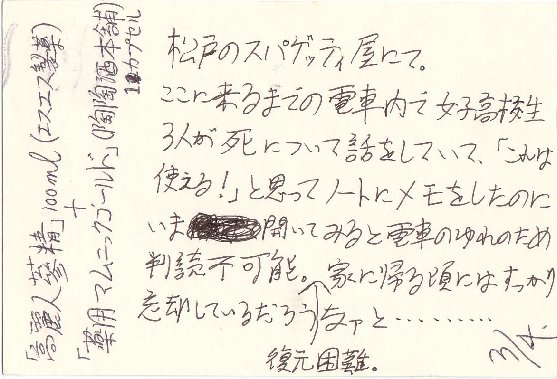 松戸のスパゲッティ屋にて。
ここに来るまでの電車内で女子高校生
3人が死について話をしていて、「これは
使える!」と思ってノートにメモをしたのに
いま開いてみると電車のゆれのため
判読不可能。家に帰る頃にはすっかり
忘却しているだろうなァと‥‥‥‥‥
復元困難。
3/4.
「高麗人蔘精」100ml(エスエス製薬)
+
「薬用マムニックゴールド」(陶陶酒本舗)
1カプセル